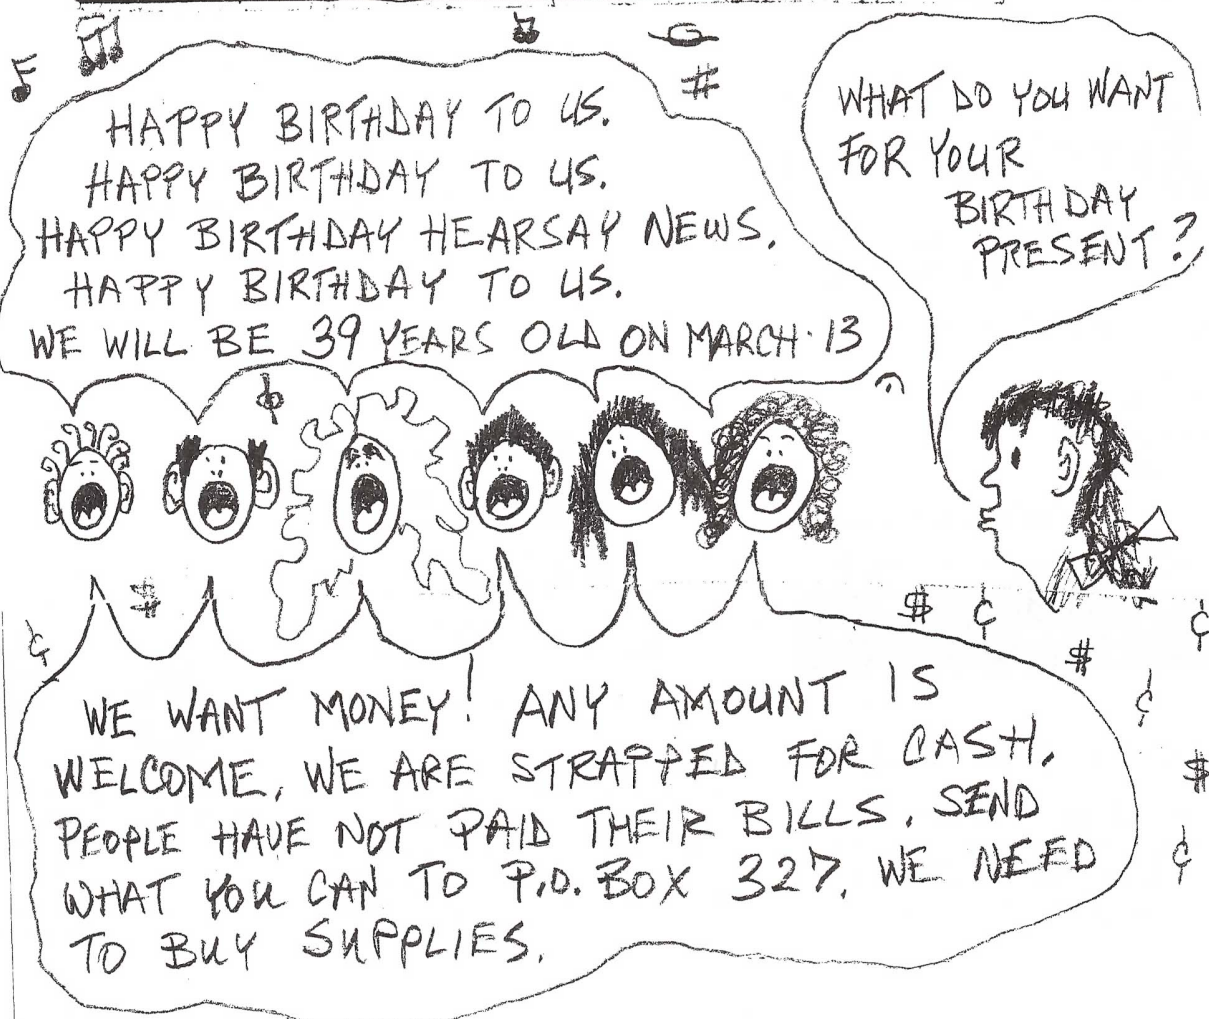 HAPPY BIRTHDAY TO US.
HAPPY BIRTHDAY TO US.
HAPPY BIRTHDAY HEARSAY NEWS.
HAPPY BIRTHDAY TO US.
WE WILL BE 39 YEARS OLD ON MARCH 13
WHAT DO YOU WANT
FOR YOUR
BIRTHDAY
PRESENT?
WE WANT MONEY! ANY AMOUNT IS
WELCOME. WE ARE STRAPPED FOR CASH.
PEOPLE HAVE NOT PAID THEIR BILLS. SEND
WHAT YOU CAN TO P.O. BOX 327. WE NEED
TO BUY SUPPLIES.